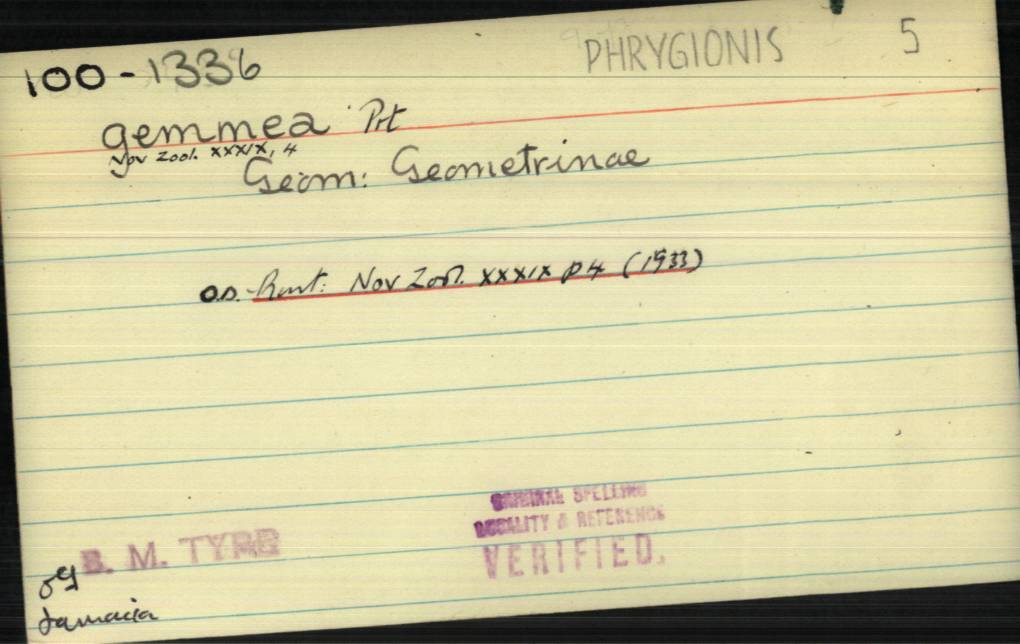 PHRYGIONIS 5
100-1336
gemmea Prt
Nov Zool. XXXIX, 4
Geom: Geometrinae
O.D. Prout: Nov Zool. XXXIX p 4 (1933)
ORIGINAL SPELLING
LOCALITY & REFERENCE
VERIFIED.
B. M. TYPE
Jamaica